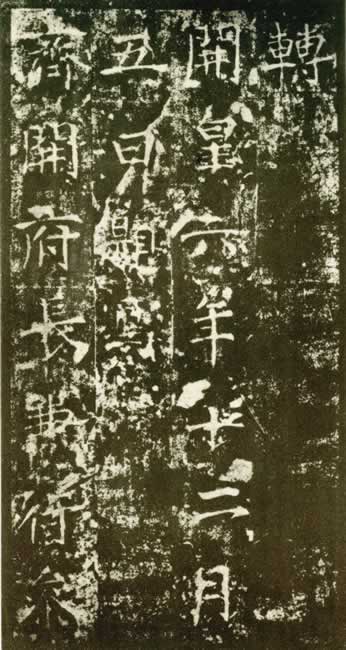 轉
開皇六年十二月
五日題寫
齊開府長兼行叅